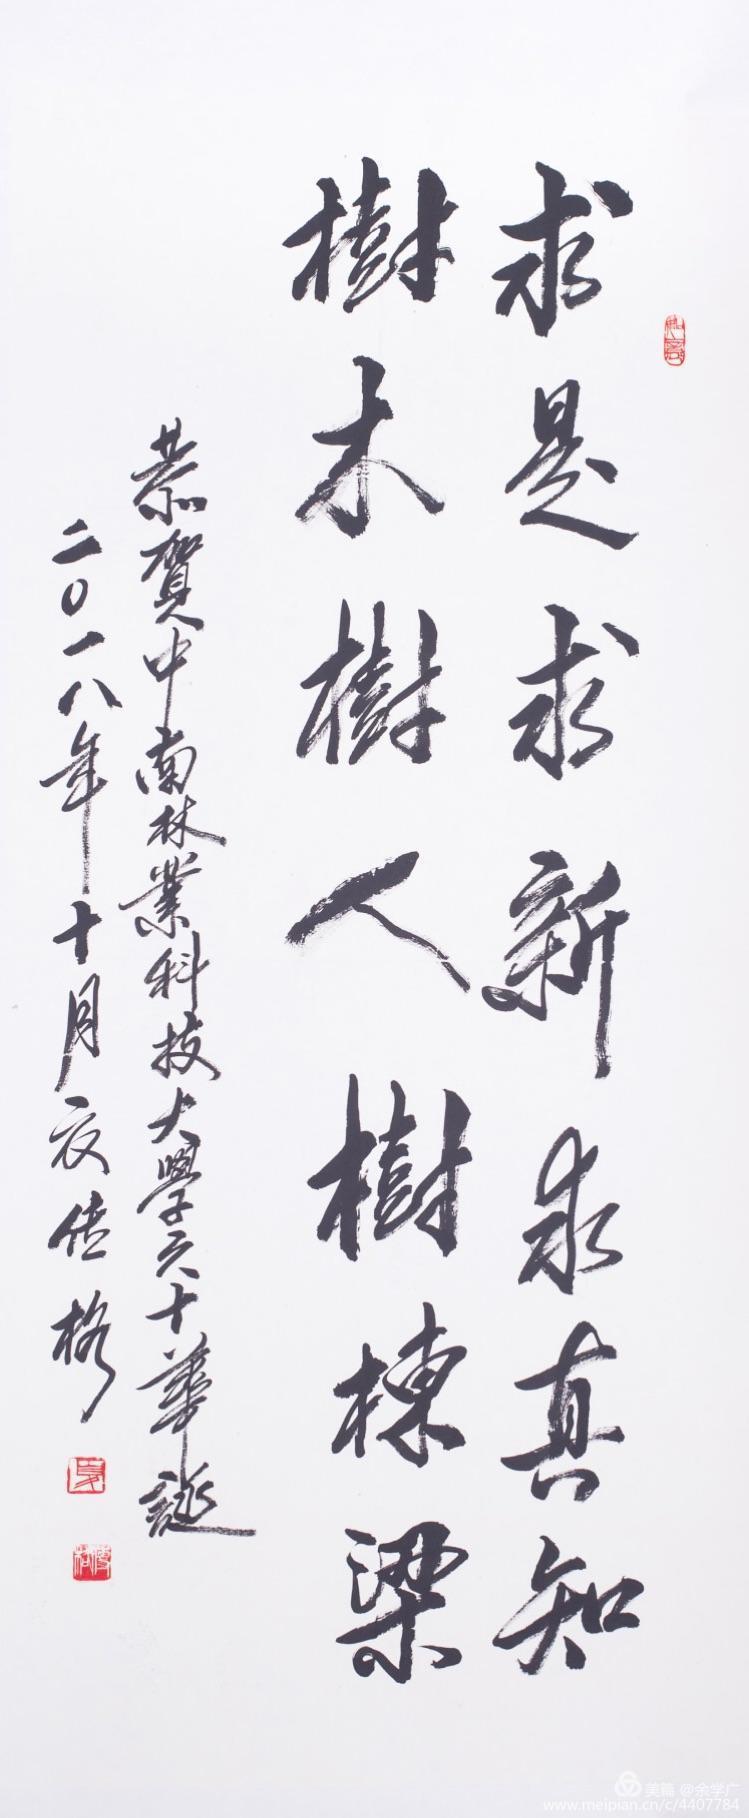 求是求新求真知
樹木樹人樹棟梁
恭賀中南林業科技大學六十華誕
二〇一八年十月夏傳格
美篇 @余学广
www.meipian.cn/c/4407784